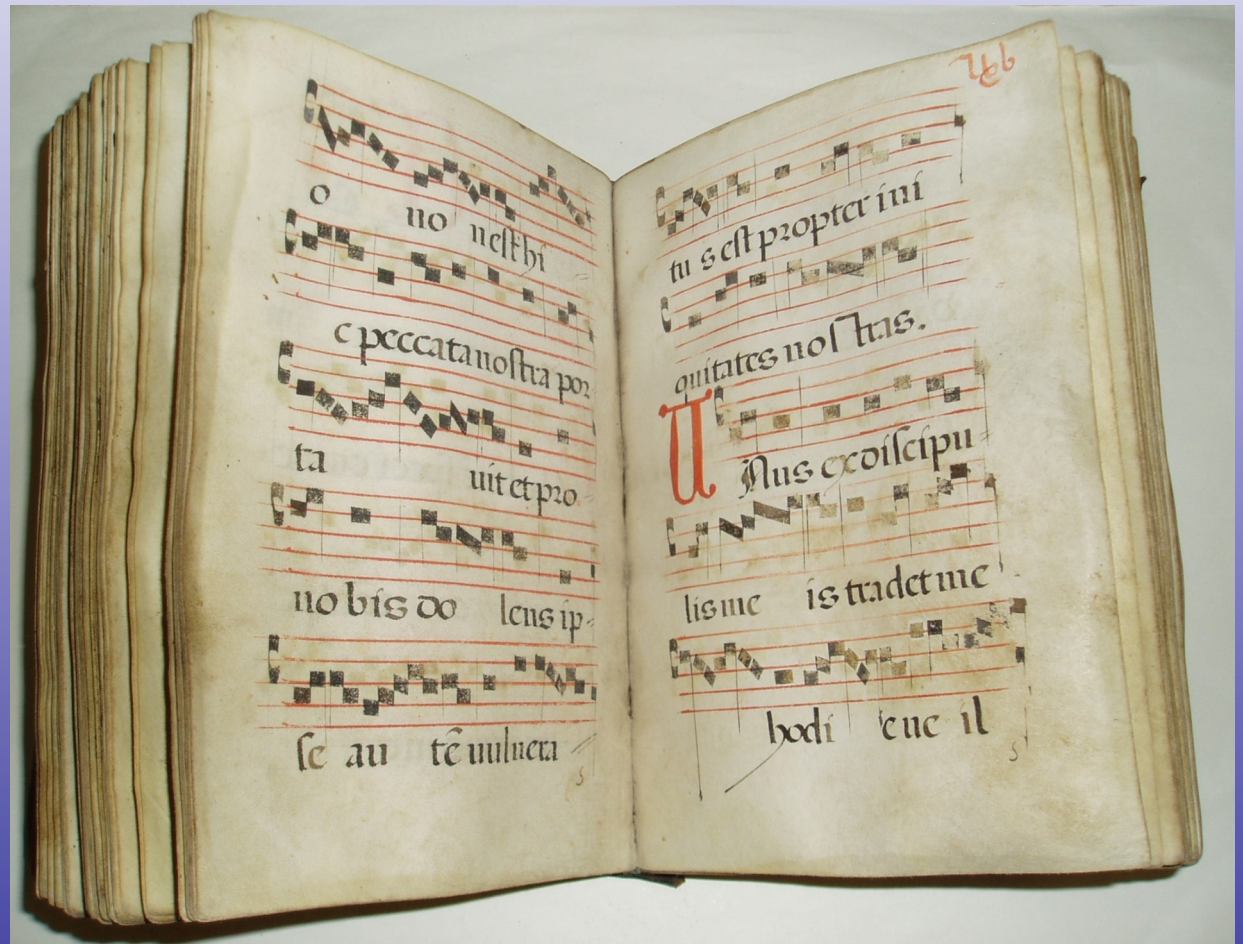 o no nest hi
c peccata nostra por
ta uit et pro
no bis do lens ip
se au tē uulnera
tu s est propter ini
quitates nos tras.
UNus ex discipu
lis me is tradet me
hodi e ue il